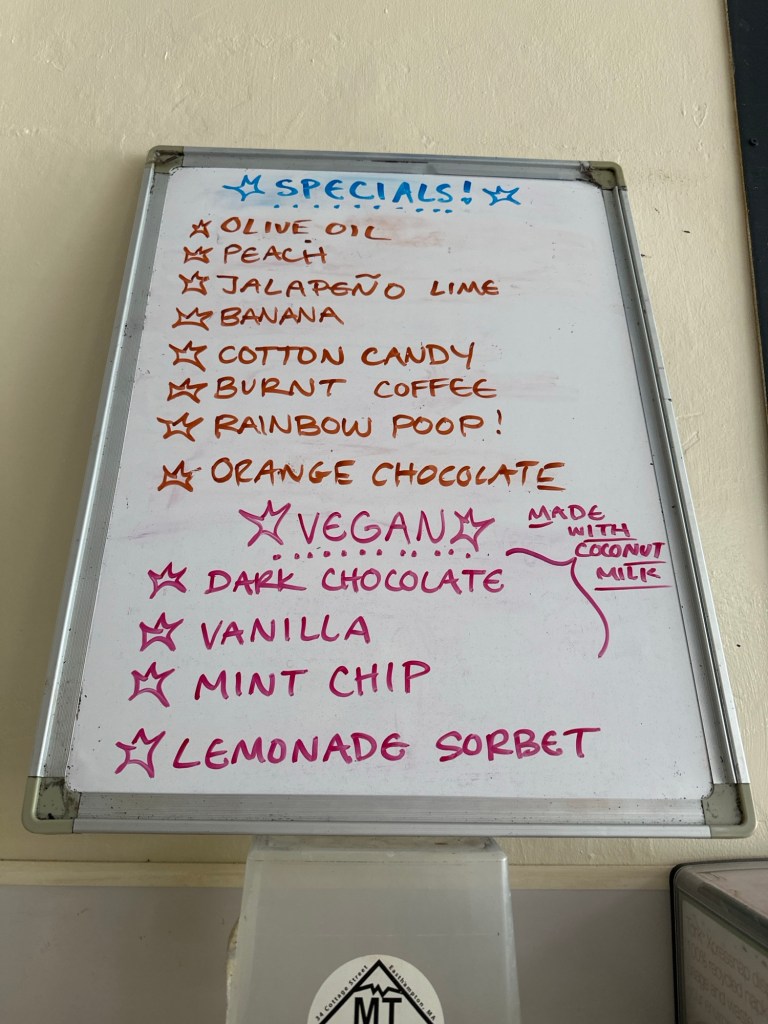 SPECIALS!
OLIVE OIL
PEACH
JALAPEÑO LIME
BANANA
COTTON CANDY
BURNT COFFEE
RAINBOW POOP!
ORANGE CHOCOLATE
VEGAN
MADE
WITH
COCONUT
MILK
DARK CHOCOLATE
VANILLA
MINT CHIP
LEMONADE SORBET
34 Cottage Street Easthampton, MA
MT